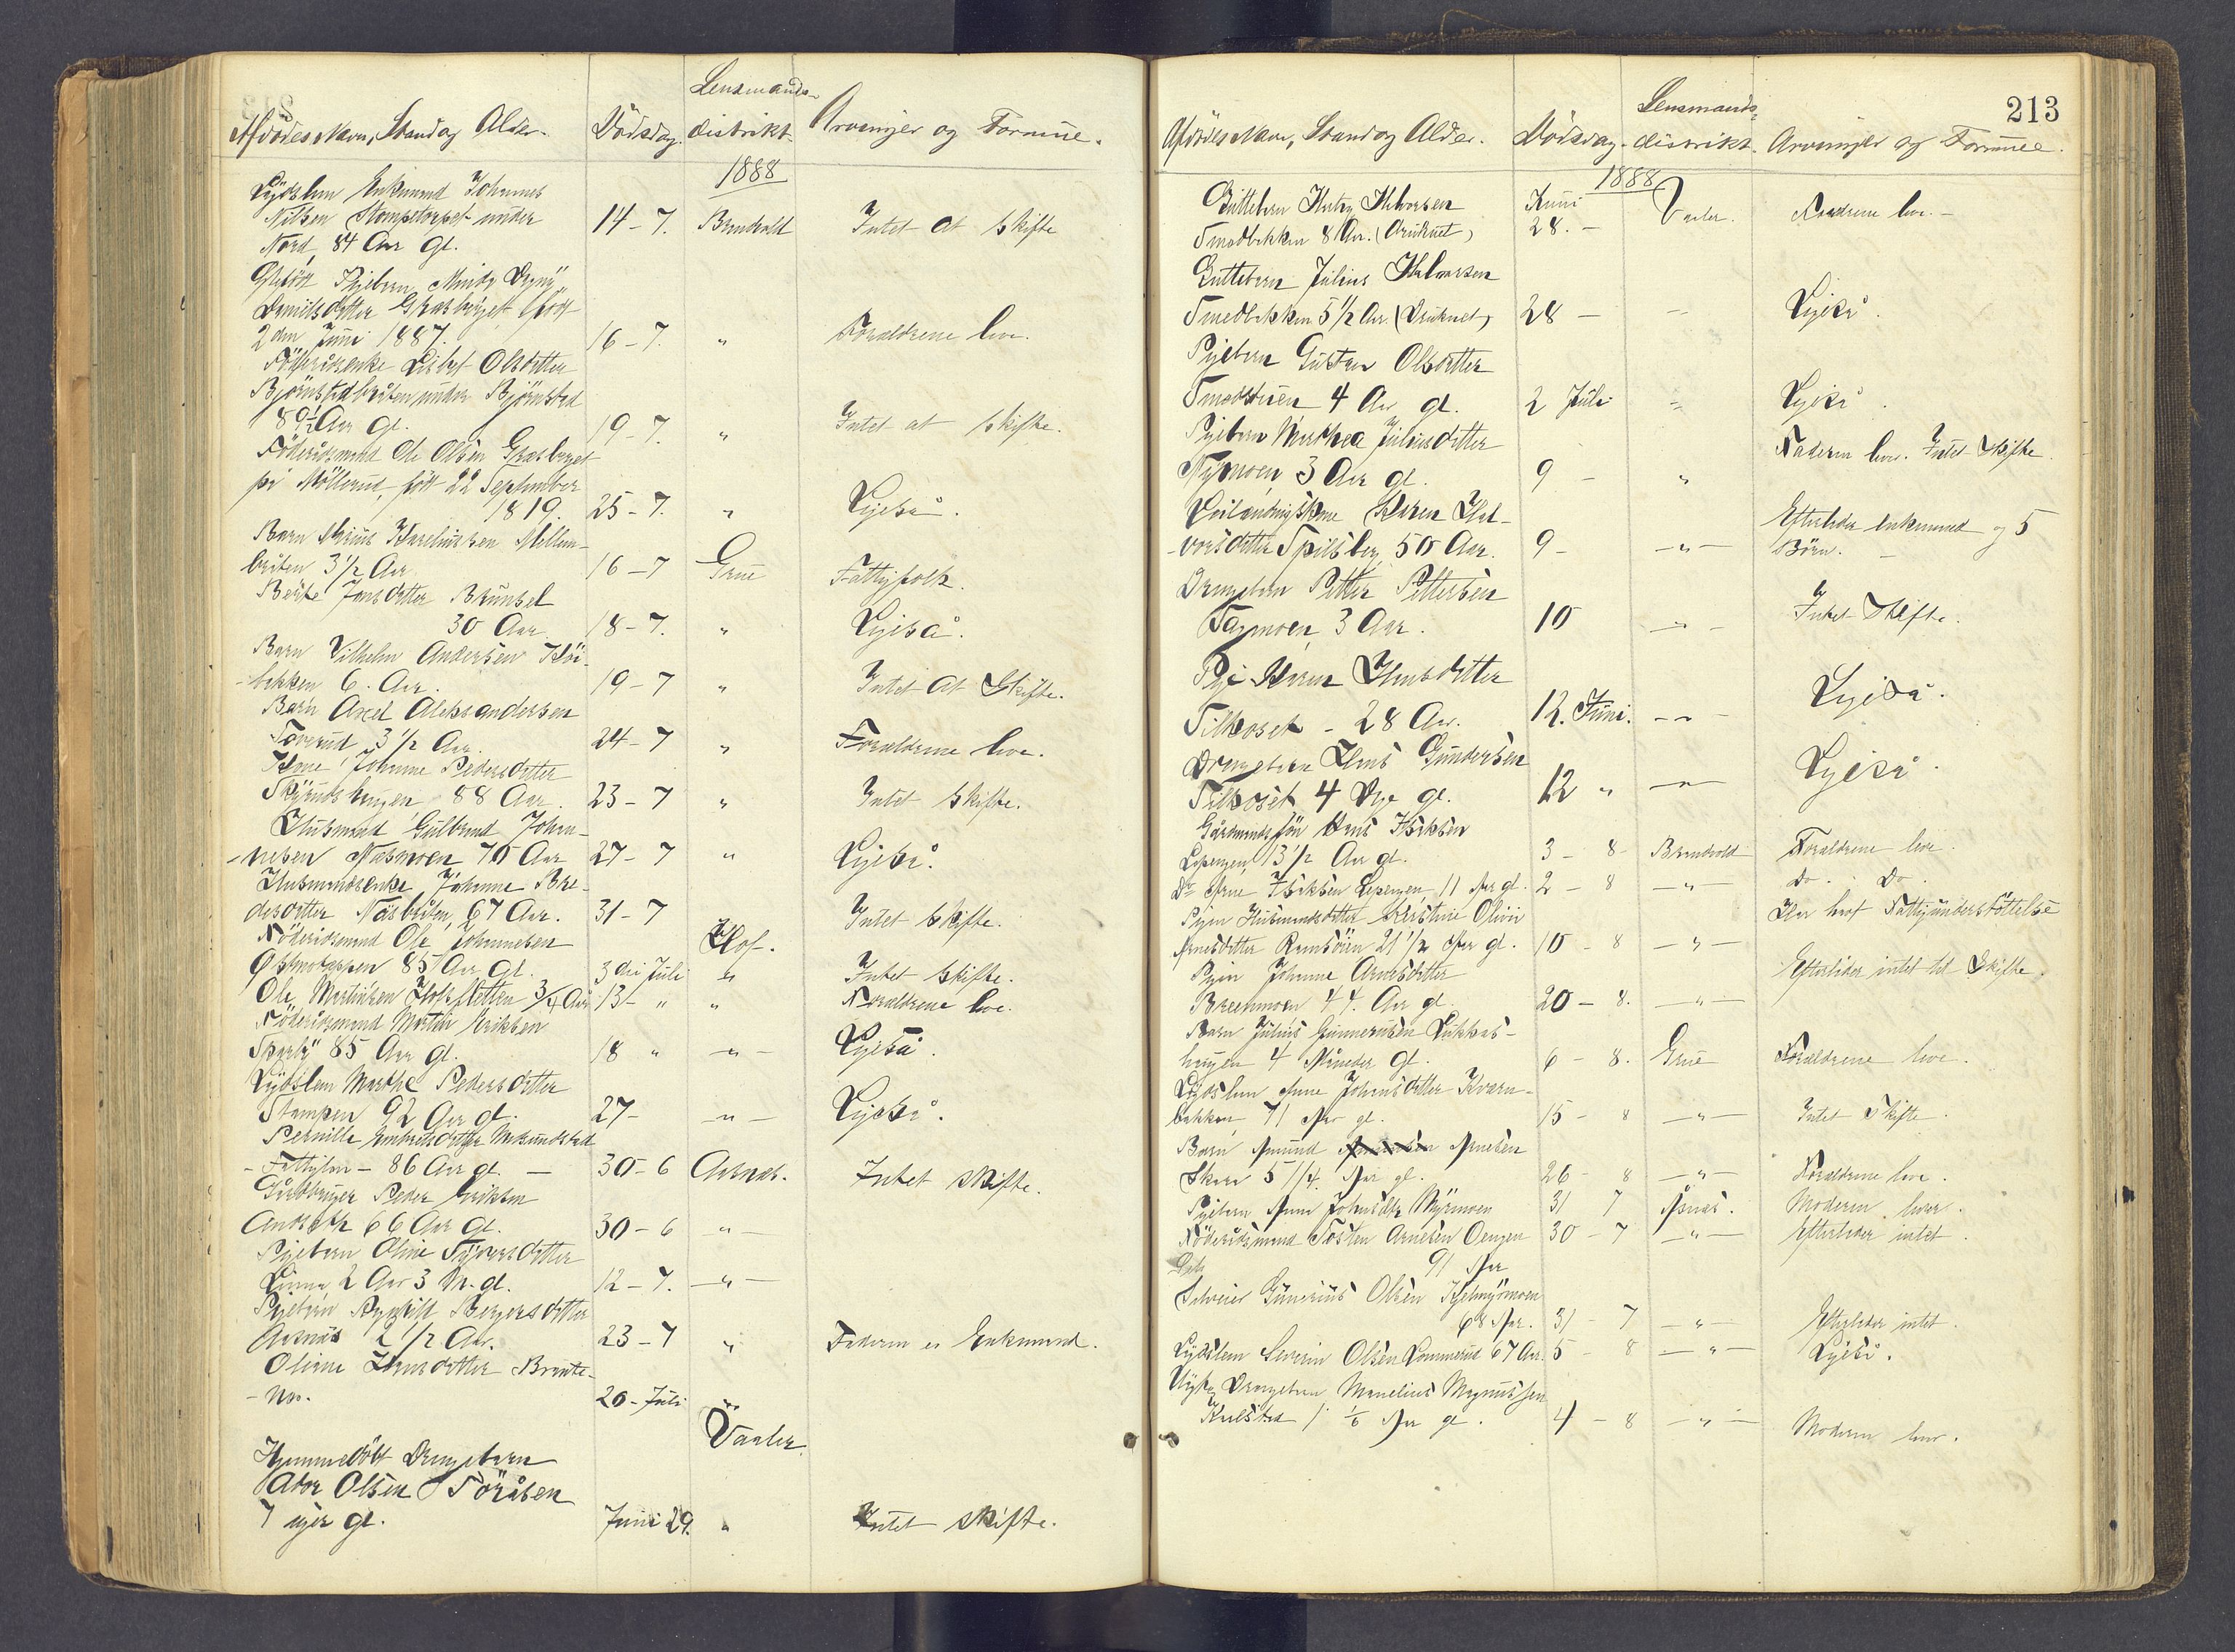 Afdødes Navn, Stand og Alder.
Dødsdag.
Lensmands-
distrikt.
Arvinger og Formue.
1888
Lægdslem Enkemand Johannes
Nilsen Stompetorpet under
Nord, 84 Aar gl.
14-7. Brandvold Intet at skifte
Pigebarn Minda Dagny
Danielsdatter Græsberget født
2den Juni 1887.
16-7. " Forældrene leve.
Föderådsenke Lisbet Olsdatter
Björnstadbråten under Björnstad
89 1/2 Aar gl.
19-7. " Intet at skifte.
Föderådsmand Ole Olsen Græsberget
på Möllerud, født 22 September
1819. 25-7. " Ligeså.
Barn Marius Kareliussen Mellem-
bråten 3 1/2 Aar 16-7 Grue Fattigfolk.
Berthe Jensdatter Brunsel
30 Aar 18-7. " Ligeså.
Barn Vilhelm Andersen
-bekken 6. Aar. 19-7 " Intet at Skifte.
Barn Axel Aleksandersen
Toverud 3 1/2 Aar. 24-7 " Forældrene leve.
Kone Johanne Pedersdatter
88 Aar. 23-7 " Intet skifte.
Husmand Gulbrand Johan-
-nesen Næsmoen 70 Aar 27-7 " Ligeså.
Husmandsenke Johanne Bre-
desdatter Näsbråten, 67 Aar. 31-7 Intet skifte.
Föderådsmand Ole Johannesen
Hof.
85 Aar gl. 3die Juli " Intet skifte.
Ole Martinsen Hofsletten 3/4 Aar 13- " " Forældrene leve.
Föderådsmand Martin Eriksen
Skarby 85 Aar gl. 18 " -"- Ligeså.
Lægdslem Marthe Pedersdatter
Stampen 92 Aar gl. 27- -"- Ligeså.
Pernille Embretsdatter
- Fattiglem - 86 Aar gl. - 30-6 Aasnæs. Intet skifte.
Gårdbruger Peder Eriksen
66 Aar gl. 30-6 "-
Pigebarn Oline
2 Aar 3 M. gl. 12-7. -"-
Pigebarn Bergersdatter
Aasnäs 2 1/2 Aar. 23-7 " Faderen er Enkemand.
Oline Hansdatter Brente-
- 20-Juli
Vaaler.
Hjemmedöbt Drengebarn
Olsen Töråsen
7 uger gl. Juni 29. " Intet skifte.
213
Afdødes Navn, Stand og Alder.
Dødsdag.
Lensmands-
distrikt.
Arvinger og Formue.
1888
Guttebarn Halvorsen
Smedbekken 8 Aar. (Druknet)
Juni
28. - Vaaler. Forældrene leve. -
Guttebarn Julius Halvorsen
Smedbekken 5 1/2 Aar. (Druknet) 28 - -"- Ligeså.
Pigebarn Gustava Olsdatter
Smedstuen 4 Aar gl. 2 Juli -"- Ligeså.
Pigebarn Marthea Juliusdatter
Nymoen 3 Aar gl. 9 - " Faderen lever. Intet Skifte.
Karen Hal-
-vorsdatter Spilsberg 50 Aar. 9- -"- Efterlader enkemand og 5
Börn. -
Drengebarn Petter Pettersen
Tagmoen 3 Aar. 10 -"- Intet Skifte.
Pige Karen Hansdatter
Tilkoset - 28 Aar. 12. Juni. -"- Ligeså.
Drengebarn Hans Gundersen
Tilkoset 4 Dge gl. 12 " -"- Ligeså.
Gårdmandssön Hans Eriksen
Lepengen 13 1/2 Aar gl. 3 - 8- Brandvold Forældrene leve.
Do Arne Eriksen Lepengen, 11 Aar gl. 2 - 8 -"- Do. Do.
Pigen Husmandsdatter Kristine Olivie
Arnesdatter 21 1/2 Aar gl. 10 - 8 -"- Har havt Fattigunderstöttelse
Pigen Johanne Arnesdatter
Breenmoen 44. Aar gl. 20 - 8. -"- Efterlader intet til Skifte.
Barn Julius Gunneriusen Lukkas-
haugen 4 Måneder gl. 6 - 8. Grue Forældrene leve.
Lægdslem Anne Johansdatter Kværn-
bekken 71 Aar gl. 15 - 8 -"- Intet Skifte.
Barn Amund Arnesen
5 1/4. Aar gl. 26 - 8 -"- Forældrene leve.
Pigebarn Anna Johnsdtr Myrmoen 31 7 Åsnæs. Moderen lever.
Föderådsmand Tosten Arnesen Oengen 30 - 7 -"- Efterlader intet.
91 Aar
Selveier Gunerius Olsen
68 Aar. 31 - 7 -"- Efterlader intet.
Lægdslem Severin Olsen Lommerud 67 Aar. 5 - 8 -"- Ligeså.
Drengebarn Manelius Magnussen
1 1/6 Aar gl. 4 - 8 -"- Moderen lever.